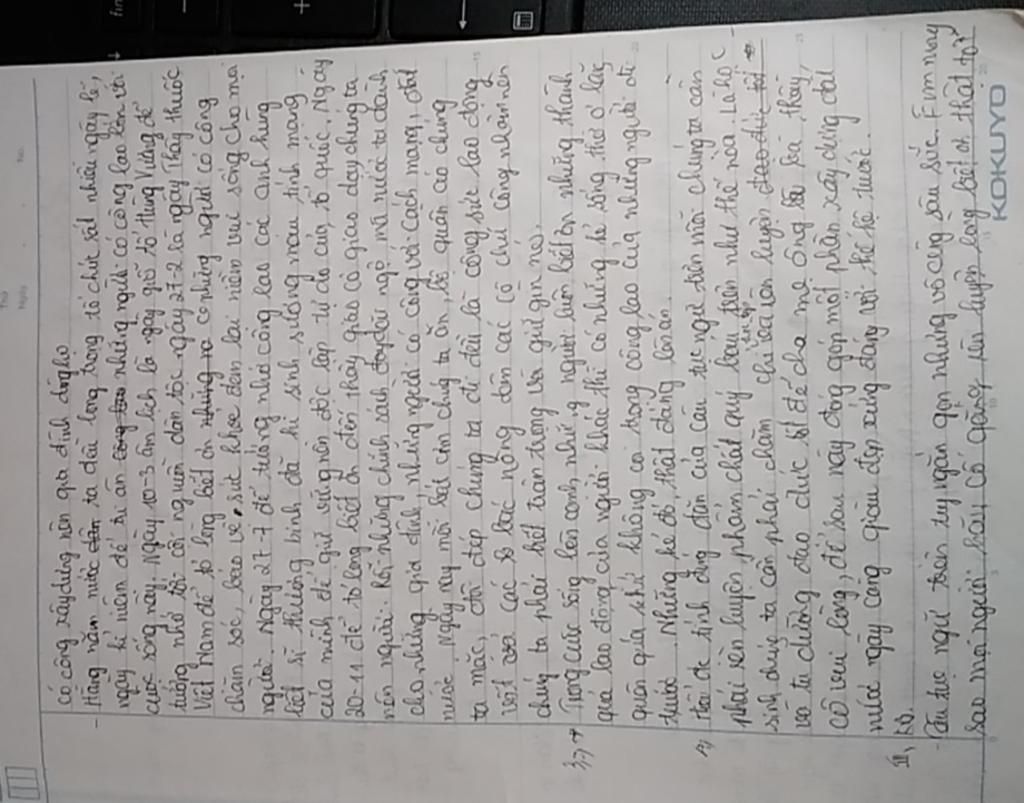 có công xây dựng nên gia đình dòng họ
- Hằng năm nước dân ta đều long trọng tổ chức rất nhiều ngày lễ,
ngày kỉ niệm để tri ân công lao những người có công lao lớn với
cuộc sống này. Ngày 10-3 âm lịch là ngày giỗ tổ Hùng Vương để
tưởng nhớ tới cội nguồn dân tộc, ngày 27-2 là ngày Thầy thuốc
Việt Nam để tỏ lòng biết ơn những ra có những người có công
chăm sóc, bảo vệ sức khỏe đem lại niềm vui sống cho mọi
người. Ngày 27-7 để tưởng nhớ công lao các anh hùng
liệt sĩ thương binh đã hi sinh xương máu tính mạng
của mình để giữ vững nền độc lập tự do của tổ quốc. Ngày
20-11 để tỏ lòng biết ơn đến thầy giáo cô giáo dạy chúng ta
nên người. Rồi những chính sách đãi ngộ mà nước ta dành
cho những gia đình, những người có công với cách mạng, đất
nước. Ngày nay mỗi bát cơm chúng ta ăn, bộ quần áo chúng
ta mặc, đôi dép chúng ta đi đều là công sức lao động
vất vả các bác nông dân các cô chú công nhân nên
chúng ta phải biết trân trọng và giữ gìn nó.
Trong cuộc sống bên cạnh những người luôn biết ơn những thành
quả lao động của người khác thì có những kẻ sống thờ ơ lãng
quên quá khứ không coi trọng công lao của những người đi
trước. Những kẻ đó thật đáng lên án.
Thấy được tính đúng đắn của câu tục ngữ trên mỗi chúng ta cần
phải rèn luyện phẩm chất quý báu trên như thế nào. Là học
sinh chúng ta cần phải chăm chỉ học tập rèn luyện đạo đức tốt
và tu dưỡng đạo đức tốt để cha mẹ ông bà thầy,
cô vui lòng, để sau này đóng góp một phần xây dựng đất
nước ngày càng giàu đẹp xứng đáng với thế hệ trước.
III, KB.
- Câu tục ngữ trên tuy ngắn gọn nhưng vô cùng sâu sắc. Em mong
sao mọi người hãy cố gắng rèn luyện lòng biết ơn thật tốt
KOKUYO